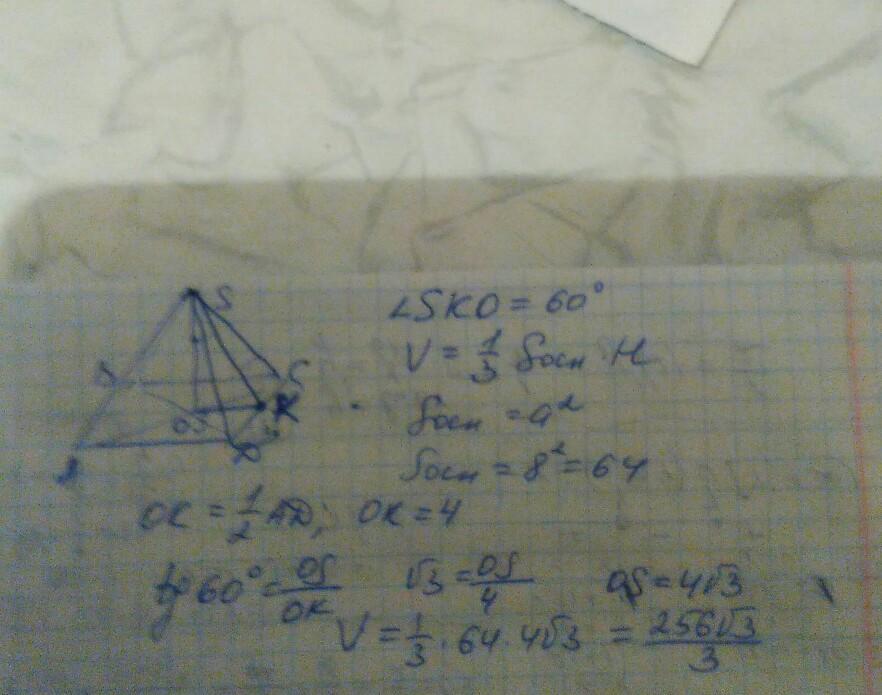 S
∠SKO = 60°
V = 1/3 Sосн · H
C
K
Sосн = a²
O
A
D
Sосн = 8² = 64
OK = 1/2 AD; OK = 4
tg 60° = OS/OK √3 = OS/4 OS = 4√3
V = 1/3 · 64 · 4√3 = 256√3/3